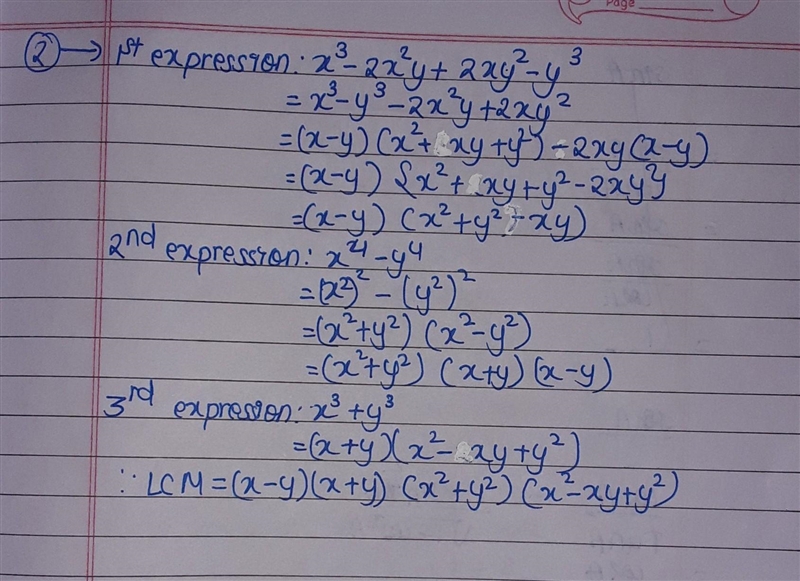 Page
② → 1st expression: x³ - 2x²y + 2xy² - y³
= x³ - y³ - 2x²y + 2xy²
= (x-y) (x² + xy + y²) - 2xy (x-y)
= (x-y) {x² + xy + y² - 2xy}
= (x-y) (x² + y² - xy)
2nd expression: x⁴ - y⁴
= (x²)² - (y²)²
= (x² + y²) (x² - y²)
= (x² + y²) (x+y) (x-y)
3rd expression: x³ + y³
= (x+y) (x² - xy + y²)
∵ LCM = (x-y) (x+y) (x² + y²) (x² - xy + y²)